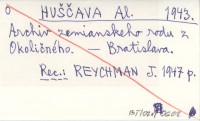 HUŠČAVA Al. 1943.
Archiv zemianskeho rodu z
Okoličného. — Bratislava.
Rec.: REYCHMAN J. 1947 p.